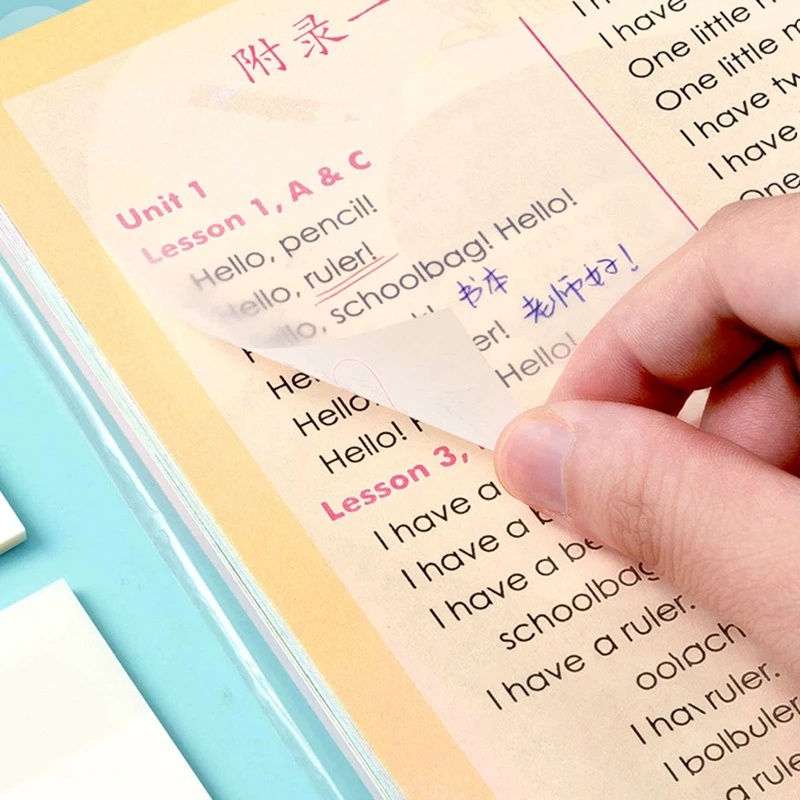 附录一
Unit 1
Lesson 1, A & C
Hello, pencil!
Hello, ruler!
Hello, schoolbag! Hello!
书本
er! 老师好!
Hello!
Hello
Hello!
Lesson 3,
I have a
I have a b
I have a be
schoolbag
I have a ruler.
ooloch
I ha\ ruler.
I bolbuler
a rule
I have
One little
One little m
I have tw
I have
One